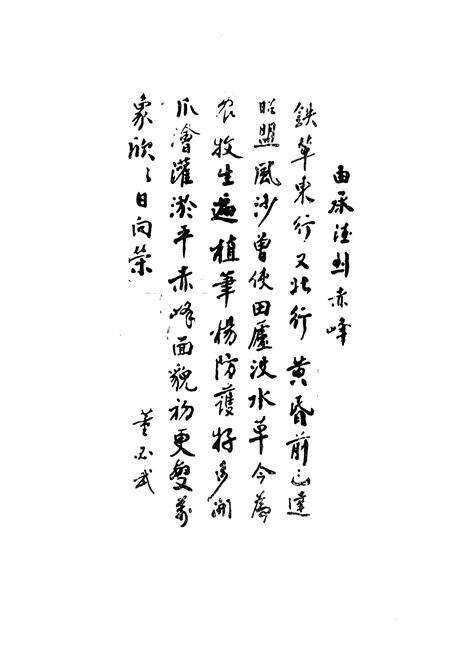 由承德到赤峰
鉄車東行又北行黄昏前已達
昭盟風沙曾使田廬没水草今為
农牧生遍植筆楊防護好多開
爪澮灌淤平赤峰面貌初更變萬
象欣〻日向榮
董必武